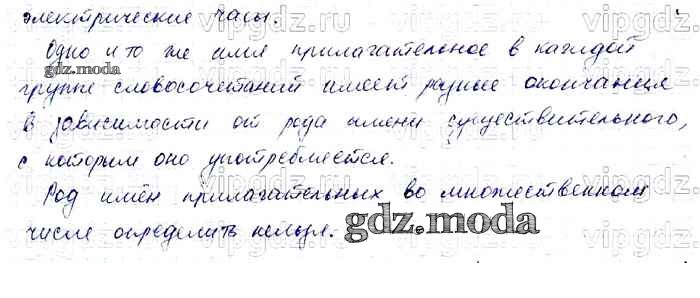 электрические часы.
Одно и то же имя прилагательное в каждой
группе словосочетаний имеет разные окончания
в зависимости от рода имени существительного,
с которым оно употребляется.
Род имён прилагательных во множественном
числе определить нельзя.
gdz.moda
gdz.moda